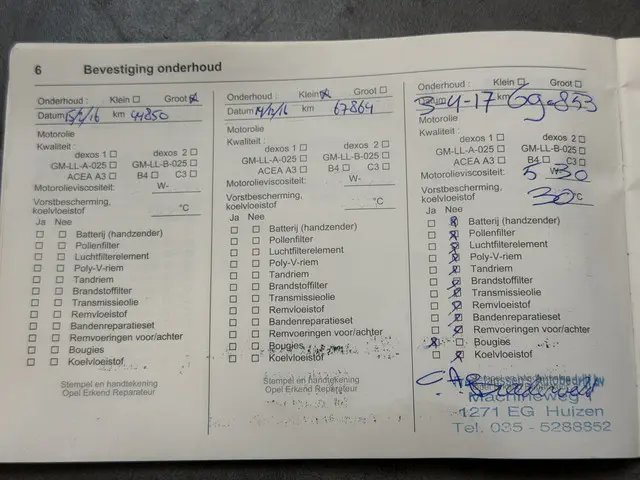 6 Bevestiging onderhoud
Onderhoud : Klein Groot
Datum 15/2/16 km 44850
Motorolie
Kwaliteit :
dexos 1 dexos 2
GM-LL-A-025 GM-LL-B-025
ACEA A3 B4 C3
Motorolieviscositeit: W-
Vorstbescherming,
koelvloeistof °C
Ja Nee
Batterij (handzender)
Pollenfilter
Luchtfilterelement
Poly-V-riem
Tandriem
Brandstoffilter
Transmissieolie
Remvloeistof
Bandenreparatieset
Remvoeringen voor/achter
Bougies
Koelvloeistof
Stempel en handtekening
Opel Erkend Reparateur
Onderhoud : Klein Groot
Datum 14/12/16 km 67864
Motorolie
Kwaliteit :
dexos 1 dexos 2
GM-LL-A-025 GM-LL-B-025
ACEA A3 B4 C3
Motorolieviscositeit: W-
Vorstbescherming,
koelvloeistof °C
Ja Nee
Batterij (handzender)
Pollenfilter
Luchtfilterelement
Poly-V-riem
Tandriem
Brandstoffilter
Transmissieolie
Remvloeistof
Bandenreparatieset
Remvoeringen voor/achter
Bougies
Koelvloeistof
Stempel en handtekening
Opel Erkend Reparateur
Onderhoud : Klein Groot
Datum 3-4-17 km 69.853
Motorolie
Kwaliteit :
dexos 1 dexos 2
GM-LL-A-025 GM-LL-B-025
ACEA A3 B4 C3
Motorolieviscositeit: 5 W- 30
Vorstbescherming,
koelvloeistof 30 °C
Ja Nee
Batterij (handzender)
Pollenfilter
Luchtfilterelement
Poly-V-riem
Tandriem
Brandstoffilter
Transmissieolie
Remvloeistof
Bandenreparatieset
Remvoeringen voor/achter
Bougies
Koelvloeistof
Autobedrijf bv
Machineweg
1271 EG Huizen
Tel. 035 - 5288852